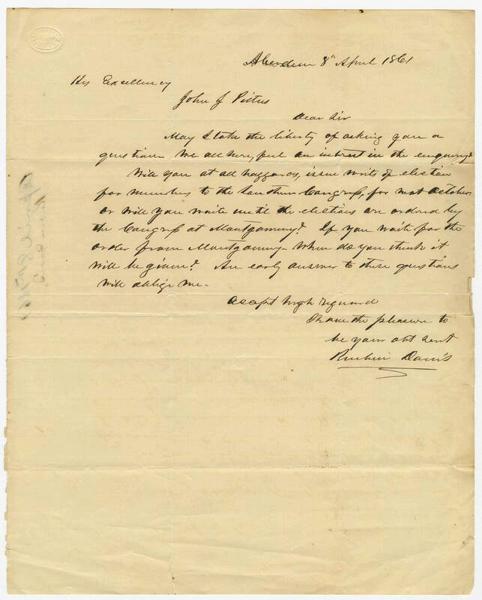 Aberdeen 8th April 1861
His Excellency
John J Pettus
Dear Sir
May I take the liberty of asking you a
question. We all here, feel an interest in the enquiry.
Will you at all hazzards, issue writs of election
for members to the Southern Congress, for next October
or will you wait until the elections are ordered by
the Congress at Montgomery? If you wait for the
order from Montgomery when do you think it
will be given? An early answer to these questions
will oblige me.
Accept high reguard
I have the pleasure to
be your obt Servt
Reuben Davis